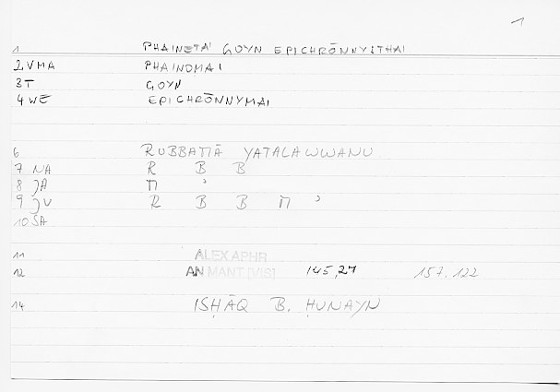 1
1 PHAINETAI GOYN EPICHRŌNNYSTHAI
2 VMA PHAINOMAI
3 T GOYN
4 WE EPICHRŌNNYMAI
6 RUBBAMĀ YATALAWWANU
7 NA R B B
8 JA M ʾ
9 JU R B B M ʾ
10 SA
11 ALEX APHR
12 AN MANT [VIS] 145,27 157.122
14 ISḤĀQ B. ḤUNAYN